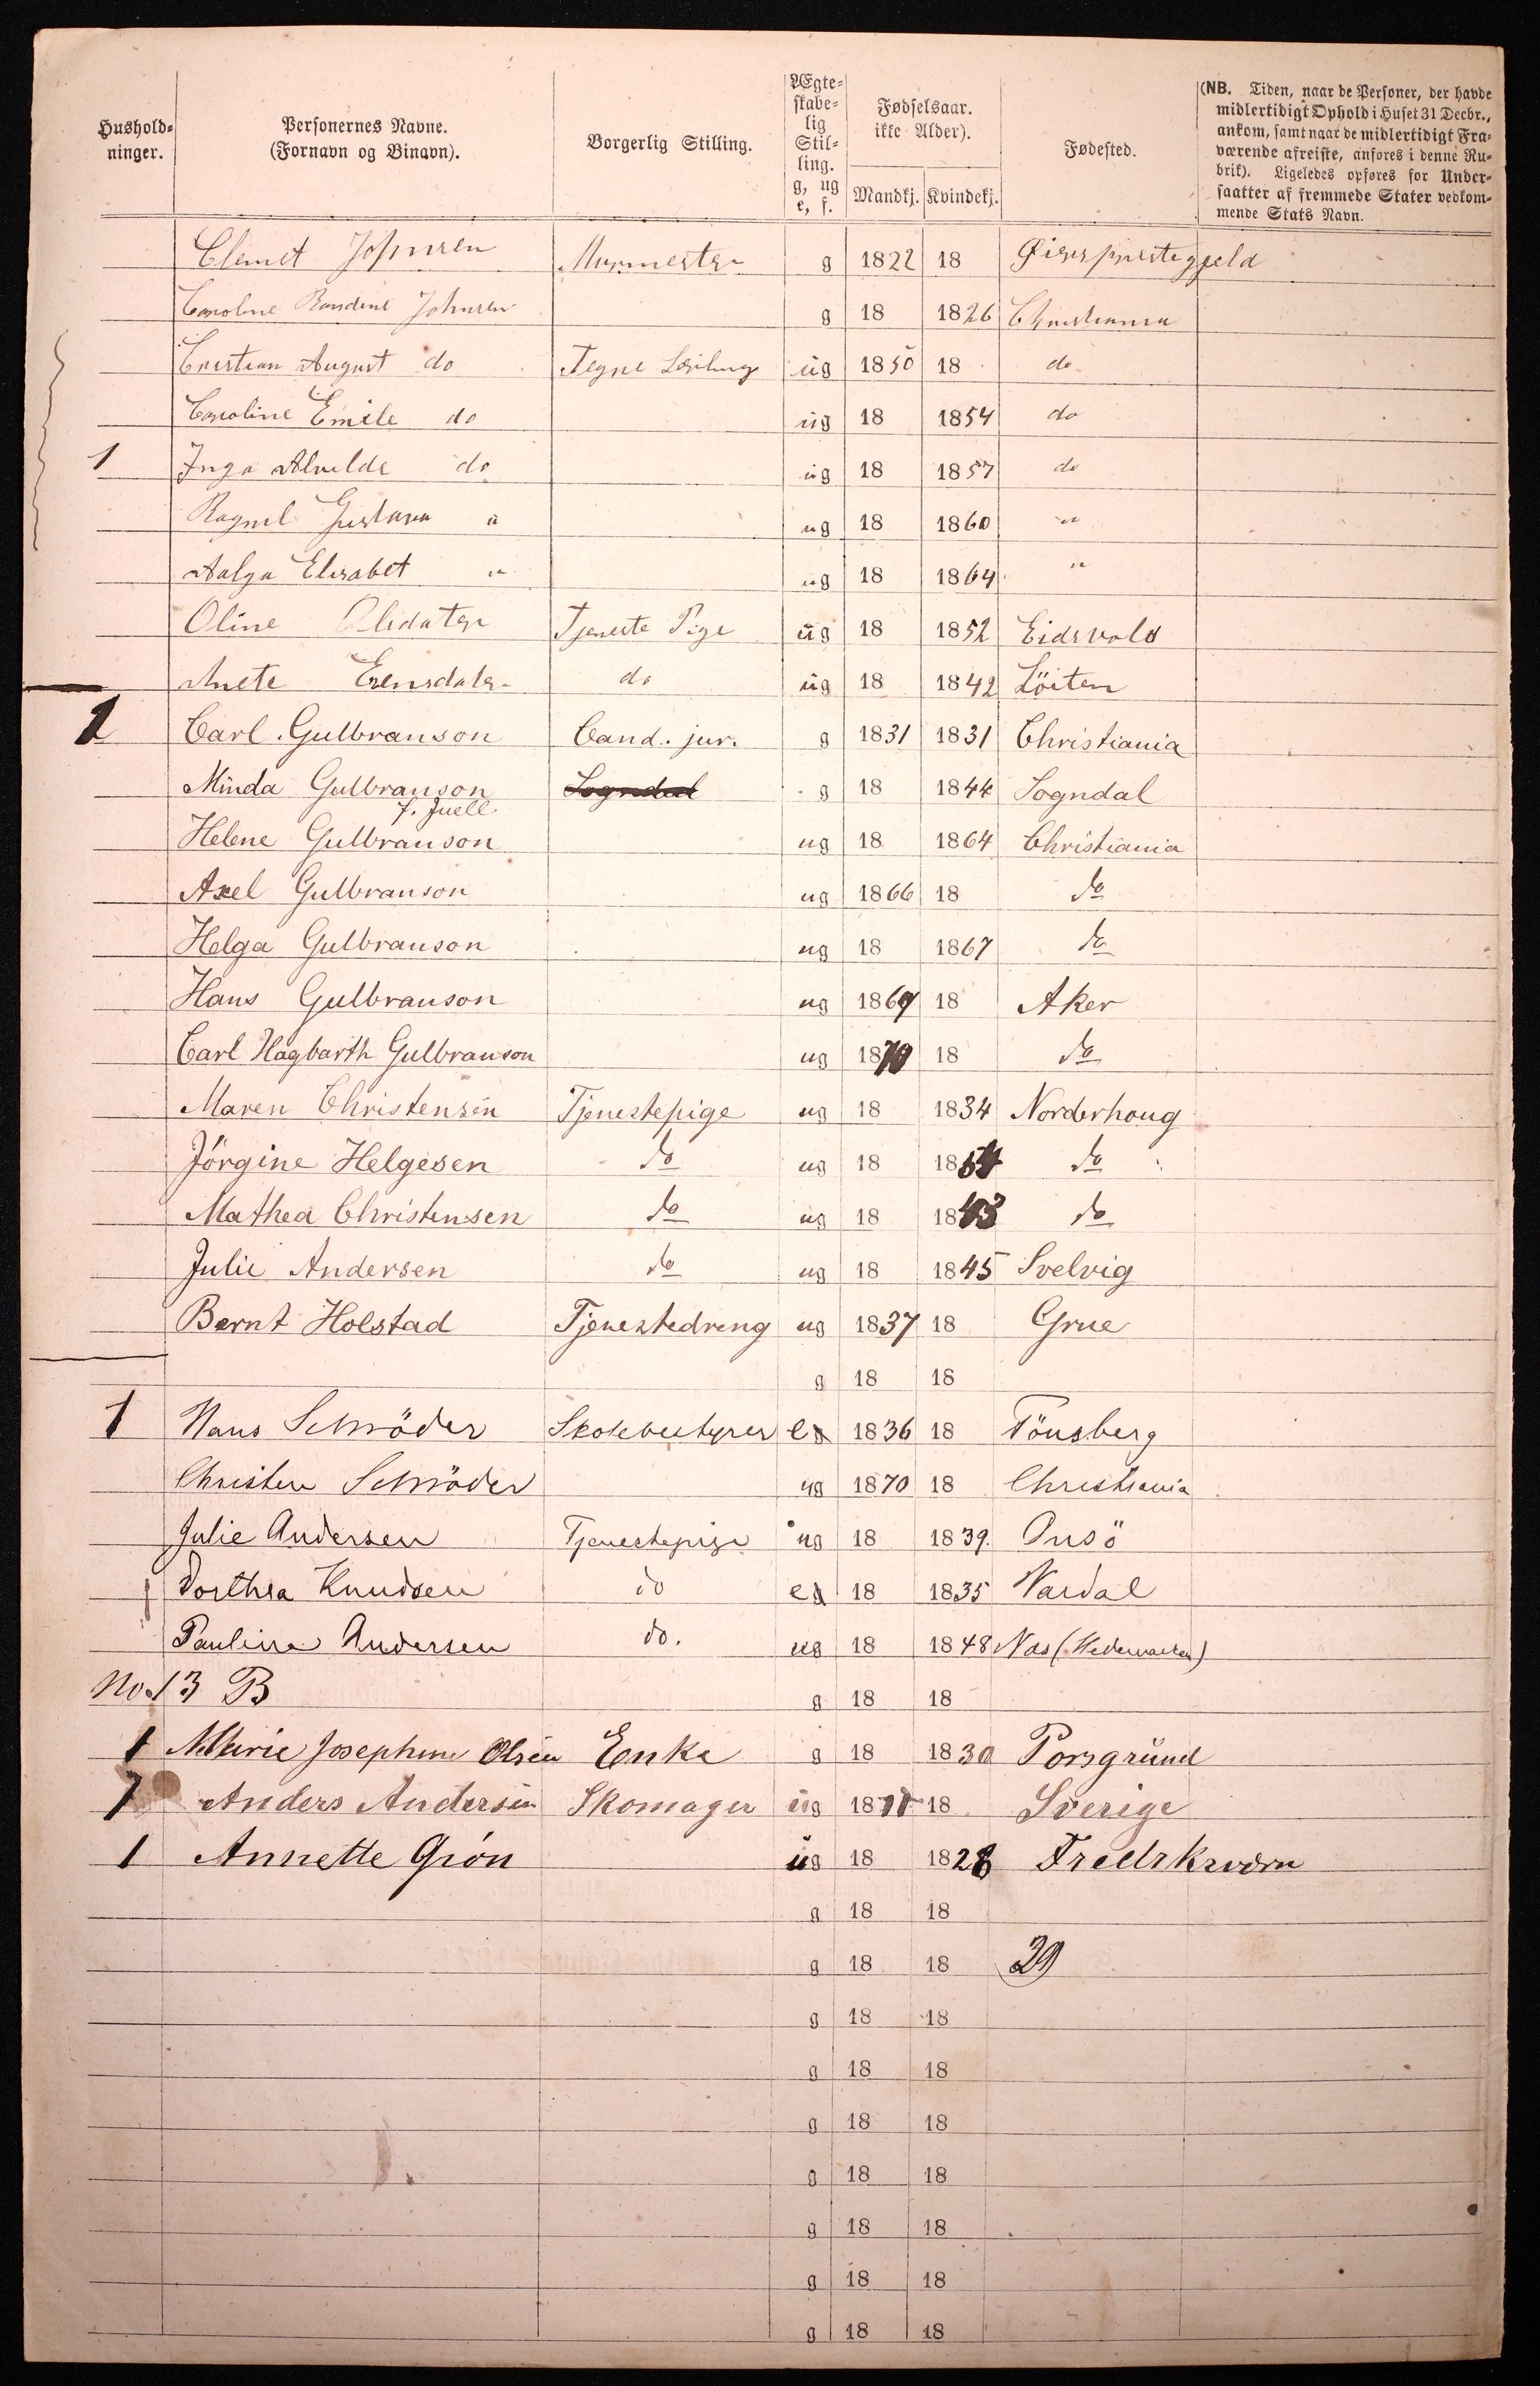 Hushold-
ninger.
Personernes Navne.
(Fornavn og Binavn).
Borgerlig Stilling.
Ægte-
skabe-
lig
Stil-
ling.
g, ug
e, f.
Fødselsaar.
ikke Alder).
Mandkj. Kvindekj.
Fødested.
(NB. Tiden, naar de Personer, der havde
midlertidigt Ophold i Huset 31 Decbr.,
ankom, samt naar de midlertidigt Fra-
værende afreiste, anføres i denne Ru-
brik). Ligeledes opføres for Under-
saatter af fremmede Stater vedkom-
mende Stats Navn.
Clemet Johnsen Murmester g 1822 18
Caroline Johnsen g 18 1826 Christiania
Cristian August do Tegne ug 1850 18 do
Caroline Emile do ug 18 1854 do
1 Inga Alvilde do ug 18 1857 do
Ragnil Gustava " ug 18 1860 "
Aalga Elisabet " ug 18 1864 "
Oline Tjeneste Pige ug 18 1852 Eidsvold
Anete do ug 18 1842 Löiten
1 Carl Gulbranson Cand. jur. g 1831 1831 Christiania
Minda Gulbranson Sogndal g 18 1844 Sogndal
f. Juell
Helene Gulbranson ug 18 1864 Christiania
Axel Gulbranson ug 1866 18 do
Helga Gulbranson ug 18 1867 do
Hans Gulbranson ug 1869 18 Aker
Carl Hagbarth Gulbranson ug 1870 18 do
Maren Christensen Tjenestepige ug 18 1834 Norderhoug
Jörgine Helgesen do ug 18 18 do
Mathea Christensen do ug 18 1843 do
Julie Andersen do ug 18 1845 Svelvig
Bernt Holstad Tjenestedreng ug 1837 18 Grue
g 18 18
1 Hans Schröder Skolebestyrer e 1836 18 Tönsberg
Christen Schröder ug 1870 18 Christiania
Julie Andersen Tjenestepige ug 18 1839. Onsö
Dorthea Knudsen do e 18 1835 Vardal
Pauline Andersen do. ug 18 1848 Nes (Hedemarken)
No. 13 B g 18 18
1 Marie Josephine Olsen Enke g 18 1830 Porsgrund
1 Anders Andersen Skomager ug 18 18 Sverige
1 Annette Grön ug 18 1828 Fredrksværn
g 18 18
g 18 18 29
g 18 18
g 18 18
g 18 18
g 18 18
g 18 18
g 18 18
g 18 18